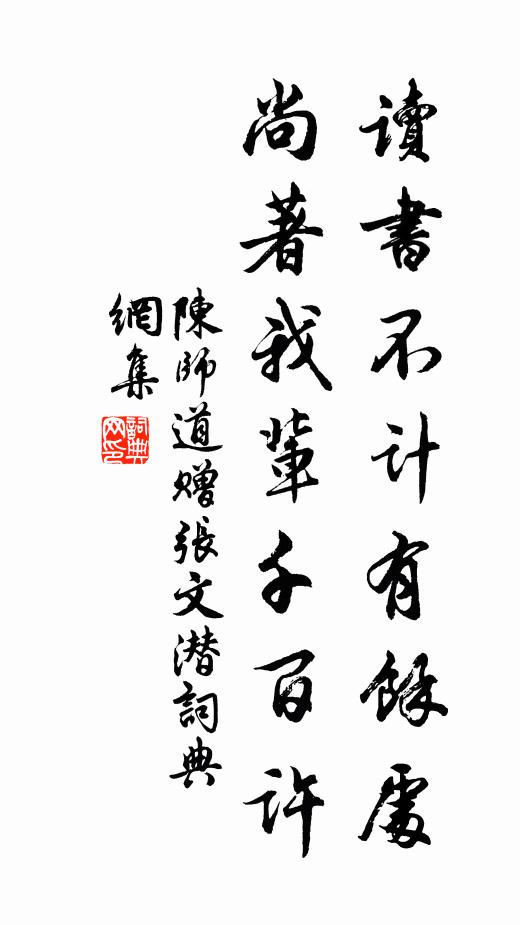 讀書不計有餘處
尚著我輩千百許
陳師道贈張文潜詞典
網集
詞典
网印